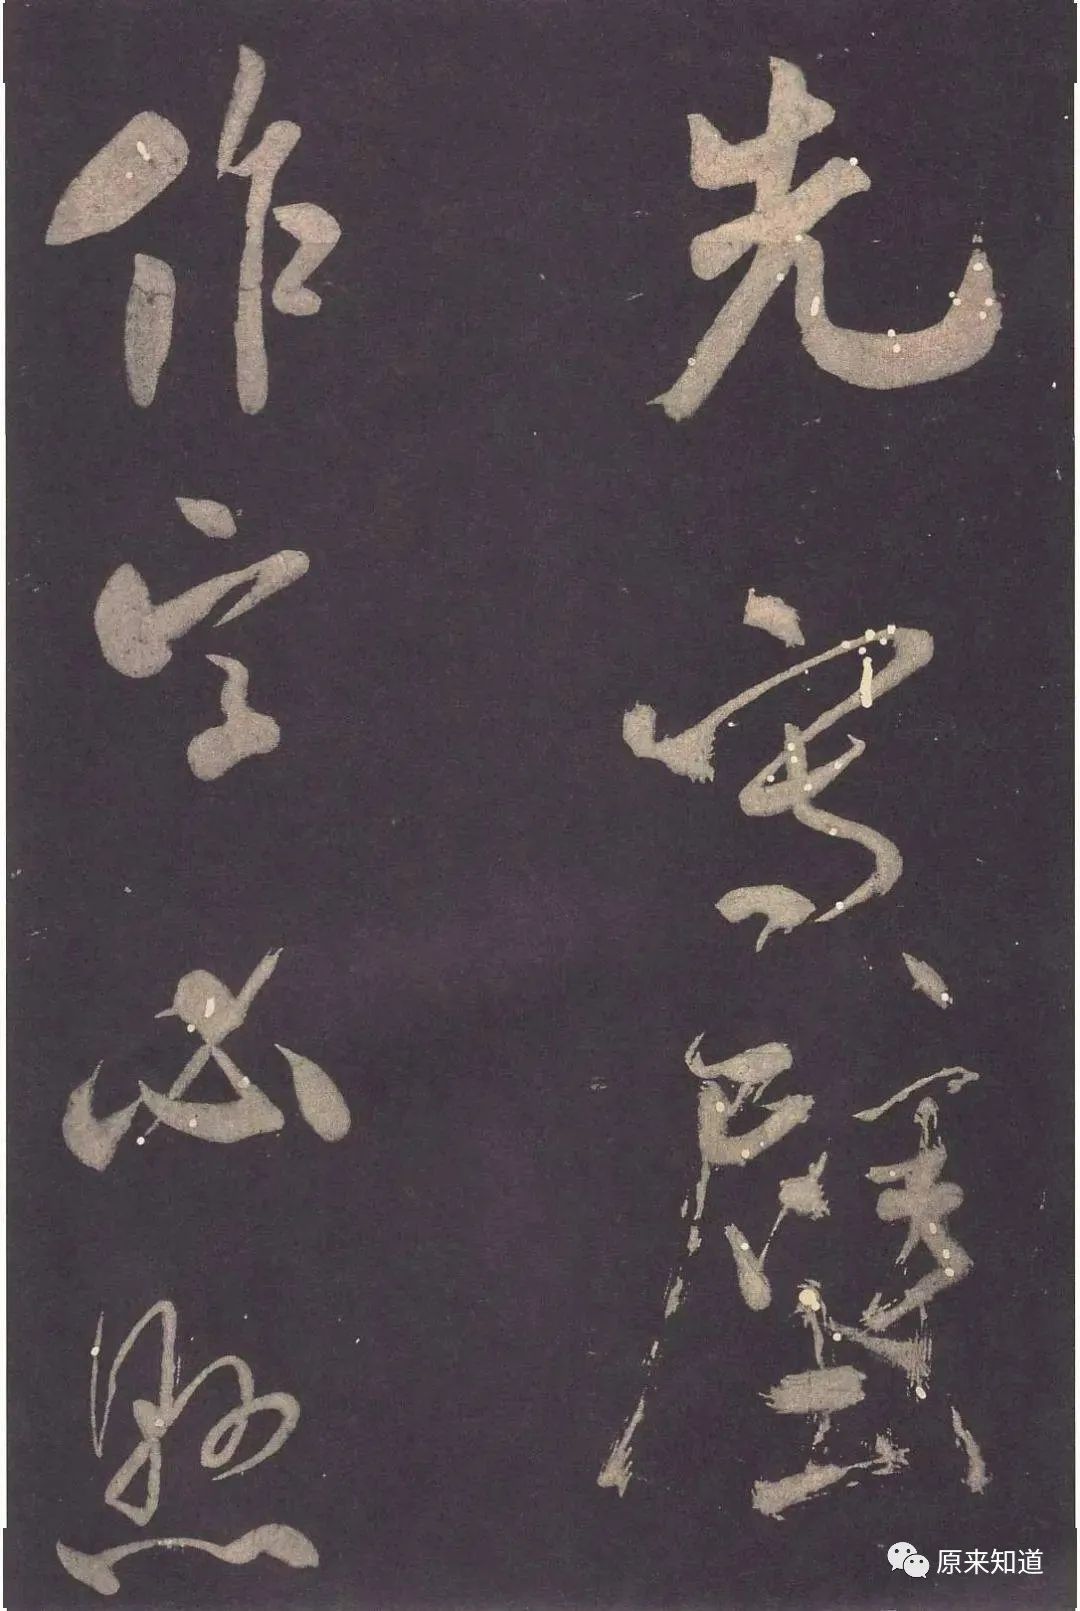 先寫壁
作字必懸
原来知道